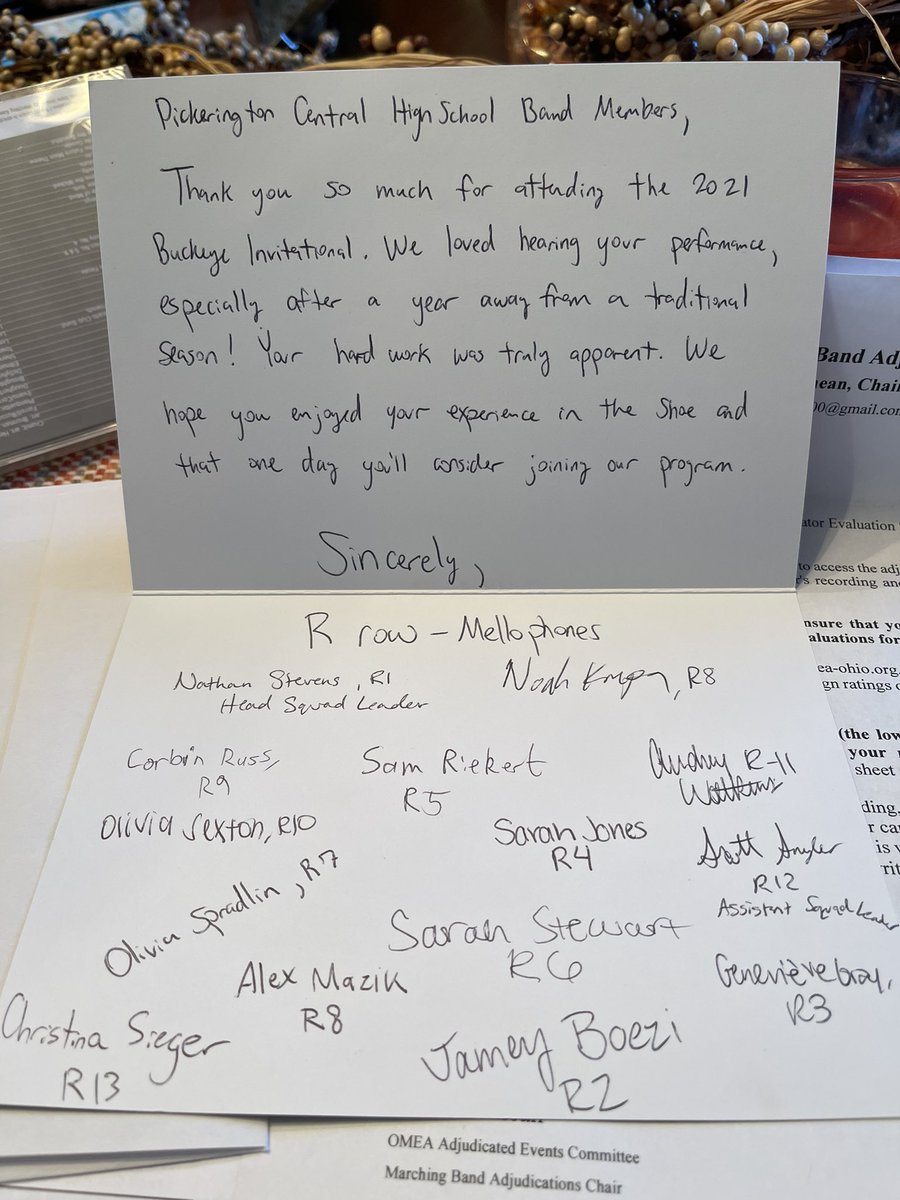 Pickerington Central High School Band Members,
Thank you so much for attending the 2021
Buckeye Invitational. We loved hearing your performance,
especially after a year away from a traditional
season! Your hard work was truly apparent. We
hope you enjoyed your experience in the Shoe and
that one day you'll consider joining our program.
Sincerely,
R row - Mellophones
Nathan Stevens, R1
Head Squad Leader
Noah, R8
Corbin Russ,
R9
Sam Riekert
R5
Audrey R-11
Watkins
Olivia Sexton, R10
Sarah Jones
R4
Scott Snyder
R12
Assistant Squad Leader
Olivia Spradlin, R7
Sarah Stewart
R6
Alex Mazik
R8
Genevième Gray,
R3
Christina Sieger
R13
Jamey Boezi
R2
Band Adj
ean, Chair
00@gmail.com
ator Evaluation
to access the adj
's recording and
nsure that yo
aluations for
ea-ohio.org.
gn ratings o
(the low
your
sheet
ding,
r car
is
OMEA Adjudicated Events Committee
Marching Band Adjudications Chair